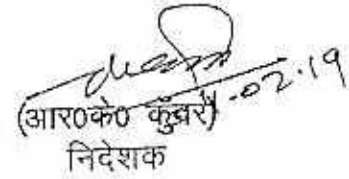 -02.19
(आर०के० कुंवर)
निदेशक